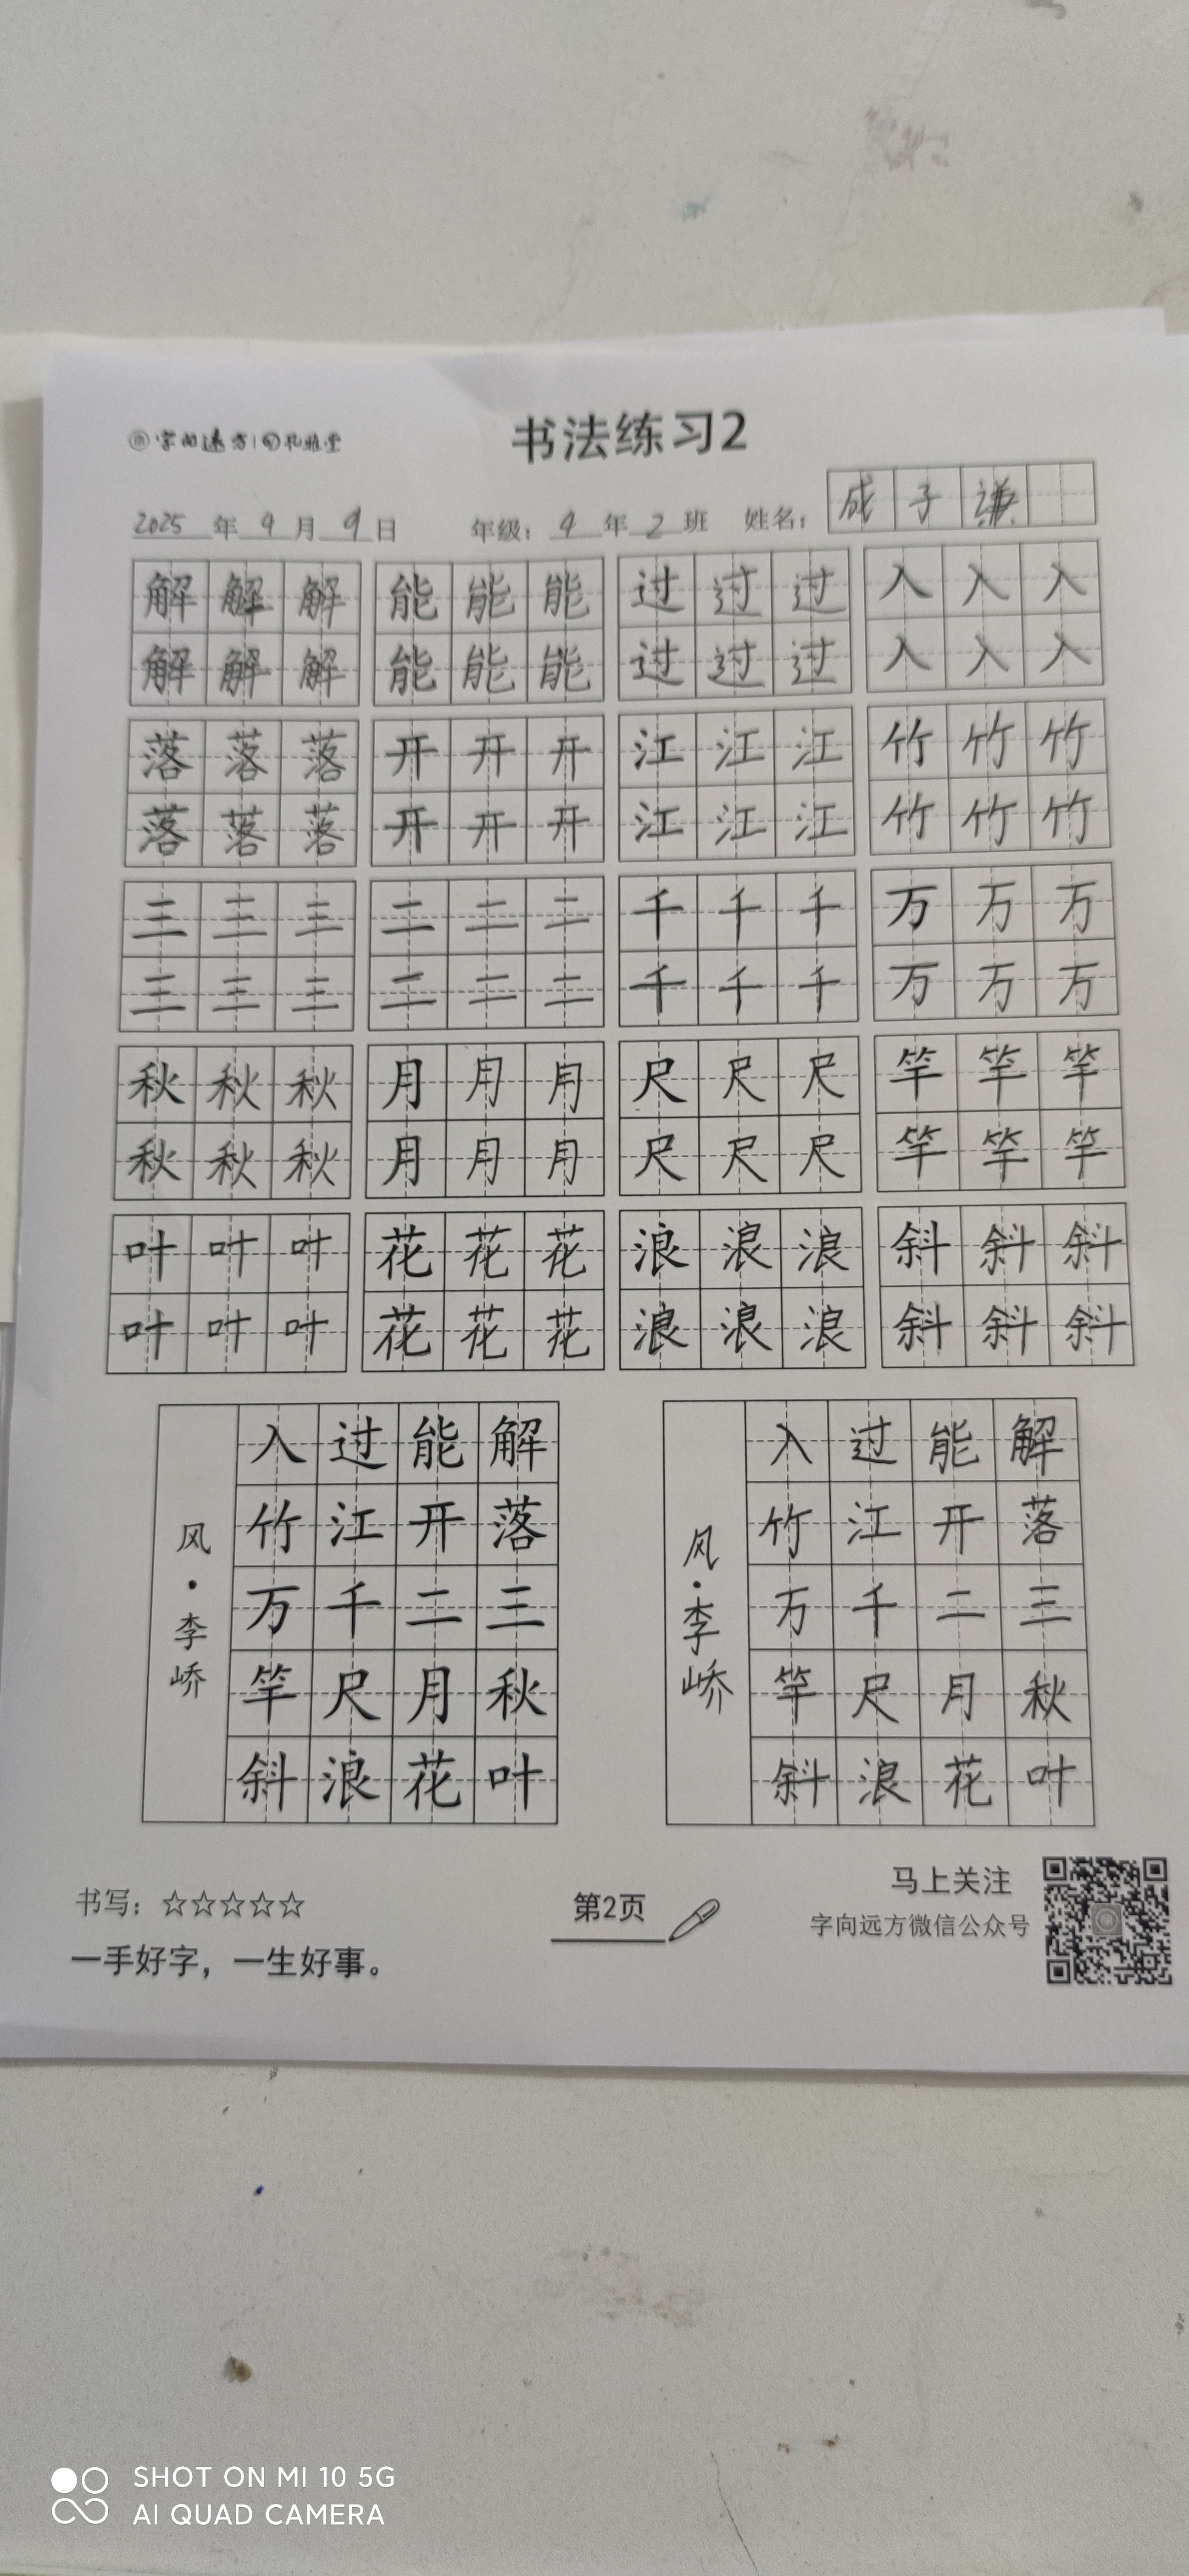 字向远方
书法练习2
2025年4月9日 年级：4年2班 姓名：成子谦
解解解 能能能 过过过 入入入
解解解 能能能 过过过 入入入
落落落 开开开 江江江 竹竹竹
落落落 开开开 江江江 竹竹竹
三三三 二二二 千千千 万万万
三三三 二二二 千千千 万万万
秋秋秋 月月月 尺尺尺 竿竿竿
秋秋秋 月月月 尺尺尺 竿竿竿
叶叶叶 花花花 浪浪浪 斜斜斜
叶叶叶 花花花 浪浪浪 斜斜斜
解落三秋叶
能开二月花
过江千尺浪
入竹万竿斜
风·李峤
解落三秋叶
能开二月花
过江千尺浪
入竹万竿斜
风·李峤
书写：☆☆☆☆☆
一手好字，一生好事。
第2页
马上关注
字向远方微信公众号
SHOT ON MI 10 5G
AI QUAD CAMERA